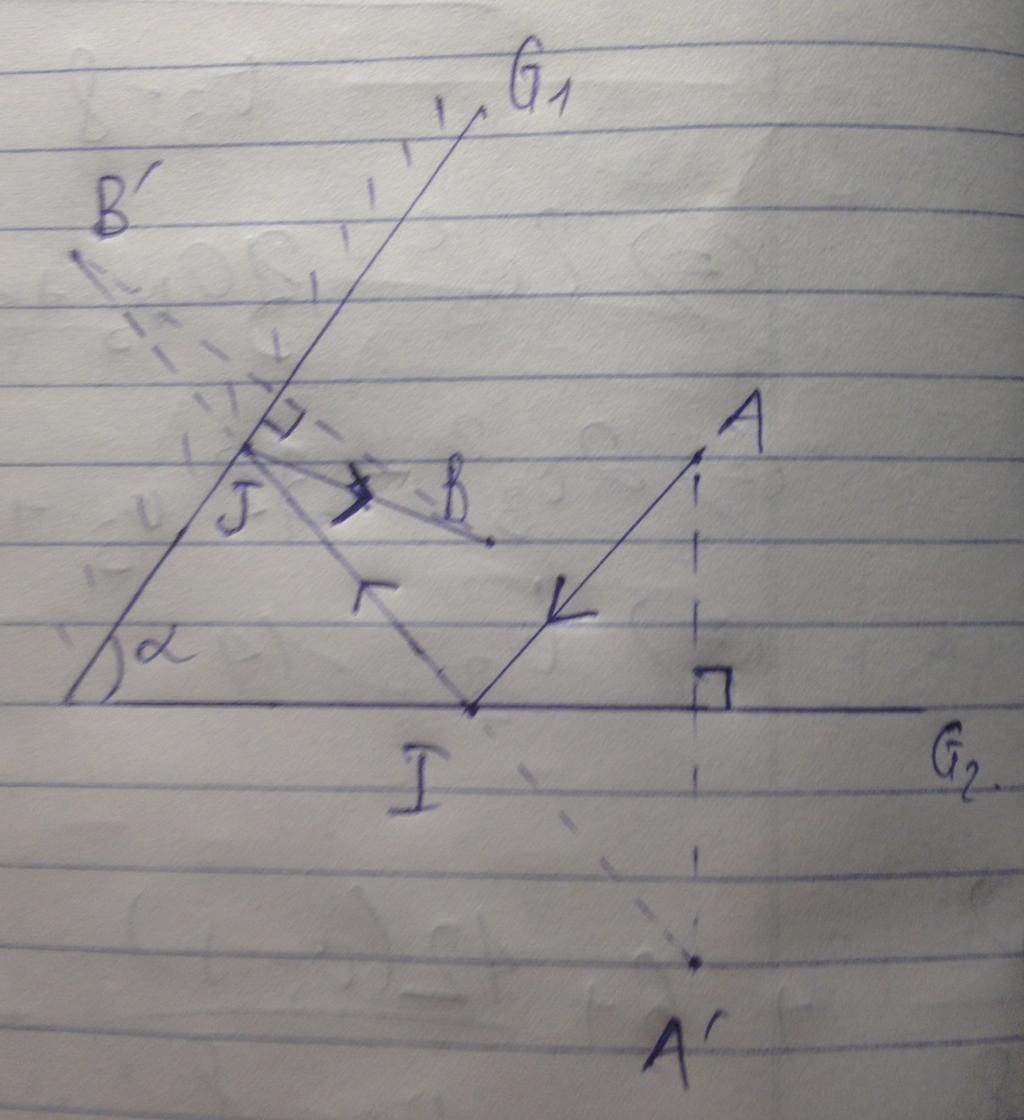 G₁
B′
A
B
J
α
I
G₂.
A′